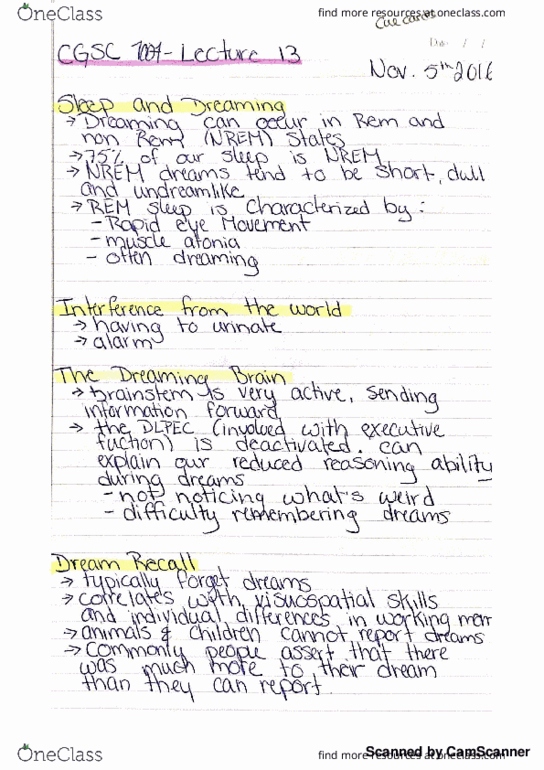 OneClass
find more resources at oneclass.com
Cue cards
CGSC 1001 - Lecture 13
Nov. 5th 2016
Sleep and Dreaming
→ Dreaming can occur in Rem and
non Rem (NREM) States
→ 75% of our sleep is NREM
→ NREM dreams tend to be short, dull
and undreamlike
→ REM sleep is characterized by:
- Rapid eye Movement
- muscle atonia
- often dreaming
Interference from the world
→ having to urinate
→ alarm
The Dreaming Brain
→ brainstem is very active, sending
information forward
→ the DLPEC (involved with executive
fuction) is deactivated. can
explain our reduced reasoning ability
during dreams
- not noticing what's weird
- difficulty remembering dreams
Dream Recall
→ typically forget dreams
→ correlates with visuospatial skills
and individual differences in working mem
→ animals & children cannot report dreams
→ Commonly people assert that there
was much more to their dream
than they can report.
OneClass
find more resources at oneclass.com
Scanned by CamScanner